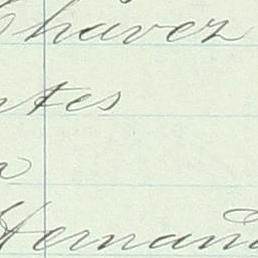 Chávez
ntes
a
Hernand